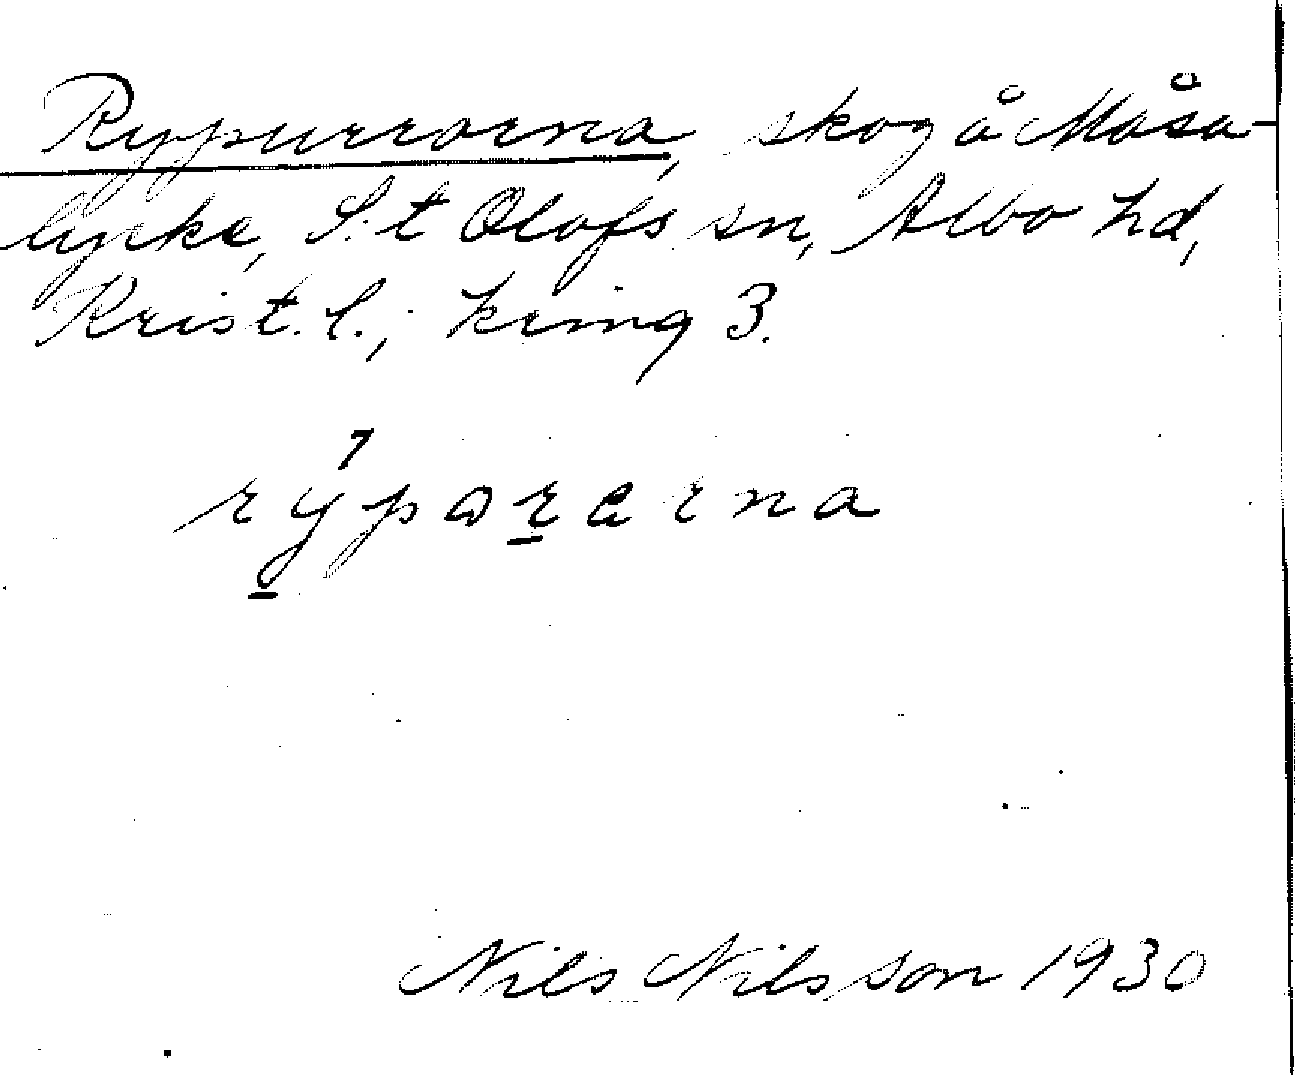 Rypurrorna, skog å Måsa-
lycke, S:t Olofs sn, Albo hd,
Krist. l.; kring 3.
rýparærna
Nils Nilsson 1930